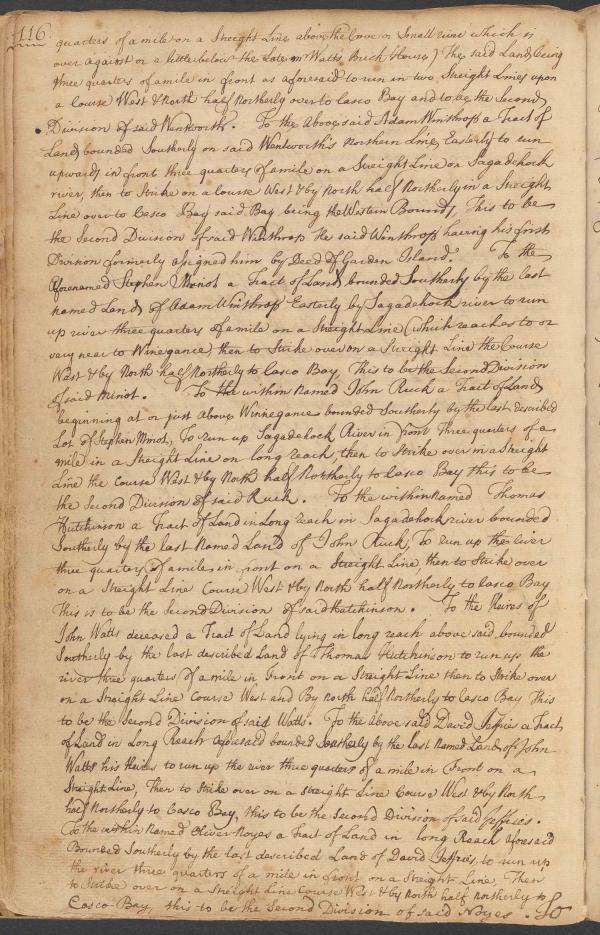 116
quarters of a mile on a Streight Line above the Cove or Small river which is
over against or a little below the Late mr Watts Brick House) The said Land being
three quarters of a mile in front as aforesaid to run in two Streight Lines upon
a Course West & North half Northerly over to Casco Bay and to be the Second
Division of said Wentworth. To the Above said Adam Winthrop a Tract of
Land bounded Southerly on said Wentworth's Northern Line, Easterly to run
upwards in front three quarters of a mile on a Streight Line on Sagadehock
river, then to Strike on a Course West & by North half Northerly in a Streight
Line over to Casco Bay said Bay being the Western Bounds, This to be
the Second Division of said Winthrop He said Winthrop haeing his first
Division formerly asigned him by Deed of Garden Island. To the
aforenamed Stephen Minot a Tract of Land bounded Southerly by the last
named Land of Adam Winthrop Easterly by Sagadehock river to run
up river three quarters of a mile on a Streight Line (which reaches to or
very near to Winegance) then to Strike over on a Streight Line the Course
West & by North half Northerly to Casco Bay, This to be the Second Division
of said Minot. To the within Named John Ruck a Tract of Land
beginning at or just above Winnegance bounded Southerly by the last described
Lot of Stephen Minot, To run up Sagadehock River in front Three quarters of a
mile in a Streight Line on long reach, then to Strike over in a Streight
Line the Course West & by North half Northerly to Casco Bay this to be
the Second Division of said Ruck. To the within named Thomas
Hutchinson a Tract of Land in Long reach in Sagadehock river bounded
Southerly by the last Named Land of John Ruck, To run up the river
three quarters of a mile in front on a Streight Line, then to Strike over
on a Streight Line Course West & by North half Northerly to Casco Bay
This is to be the Second Division of said Hutchinson. To the Heires of
John Watts deceased a Tract of Land lying in long reach above said bounded
Southerly by the last described Land of Thomas Hutchinson to run up the
river three quarters of a mile in Front on a Streight Line then to Strike over
on a Streight Line Course West and By North half Northerly to Casco Bay This
to be the Second Division of said Watts. To the above said David Jeffries a Tract
of Land in Long Reach aforesaid bounded Southerly by the last Named Land of John
Watts his Heires to run up the river three quarters of a mile in Front on a
Streight Line, Then to Strike over on a streight Line Course West & by North
half Northerly to Casco Bay, this to be the Second Division of said Jeffries.
To the within Named Oliver Noyes a Tract of Land in long Reach aforesaid
Bounded Southerly by the last described Land of David Jeffries, to run up
the river three quarters of a mile in front on a Streight Line, Then
to Strike over on a Streight Line Course West & by North half Northerly to
Casco Bay, this to be the Second Division of said Noyes. To